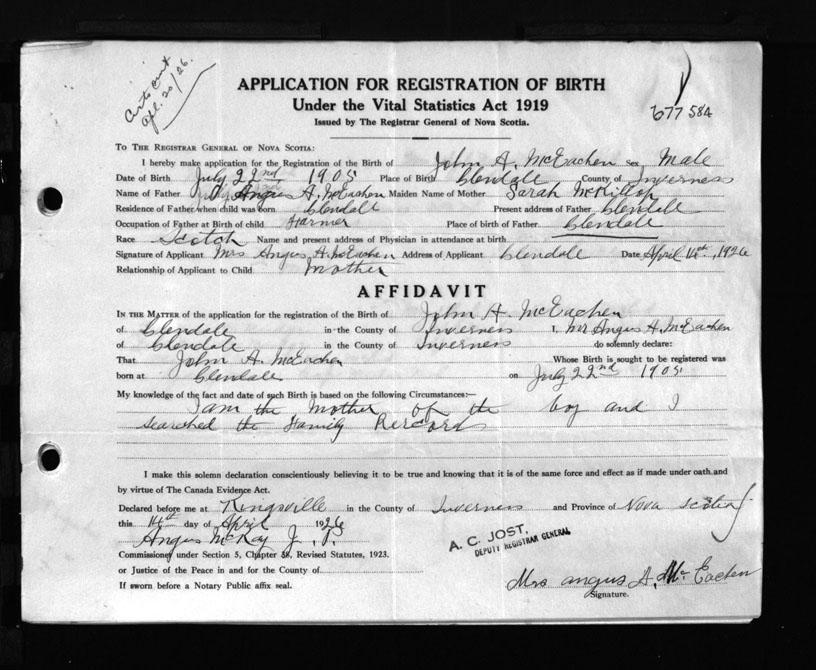 Certs sent
Apl. 20/26.
APPLICATION FOR REGISTRATION OF BIRTH
Under the Vital Statistics Act 1919
Issued by The Registrar General of Nova Scotia.
677 584
TO THE REGISTRAR GENERAL OF NOVA SCOTIA:
I hereby make application for the Registration of the Birth of John A. McEachen sex Male
Date of Birth July 22nd 1905 Place of Birth Glendale County of Inverness
Name of Father Angus A. McEachen Maiden Name of Mother Sarah McKillop
Residence of Father when child was born Glendale Present address of Father Glendale
Occupation of Father at Birth of child Farmer Place of birth of Father Glendale
Race Scotch Name and present address of Physician in attendance at birth
Signature of Applicant Mrs Angus A. McEachen Address of Applicant Glendale Date April 14th, 1926
Relationship of Applicant to Child Mother
AFFIDAVIT
IN THE MATTER of the application for the registration of Birth of John A. McEachen
of Glendale in the County of Inverness I, Mr Angus A. McEachen
of Glendale in the County of Inverness do solemnly declare:
That John A. McEachen Whose Birth is sought to be registered was
born at Glendale on July 22nd 1905
My knowledge of the fact and date of such Birth is based on the following Circumstances:—
I am the Mother of the boy and I
searched the Family Rercord
I make this solemn declaration conscientiously believing it to be true and knowing that it is of the same force and effect as if made under oath and
by virtue of The Canada Evidence Act.
Declared before me at Kingsville in the County of Inverness and Province of Nova Scotia
this 14th day of April 1926
Angus McKay J. P.
A. C. JOST,
DEPUTY REGISTRAR GENERAL
Commissioner under Section 5, Chapter 38, Revised Statutes, 1923.
or Justice of the Peace in and for the County of
Mrs Angus A. McEachen
If sworn before a Notary Public affix seal.
Signature.